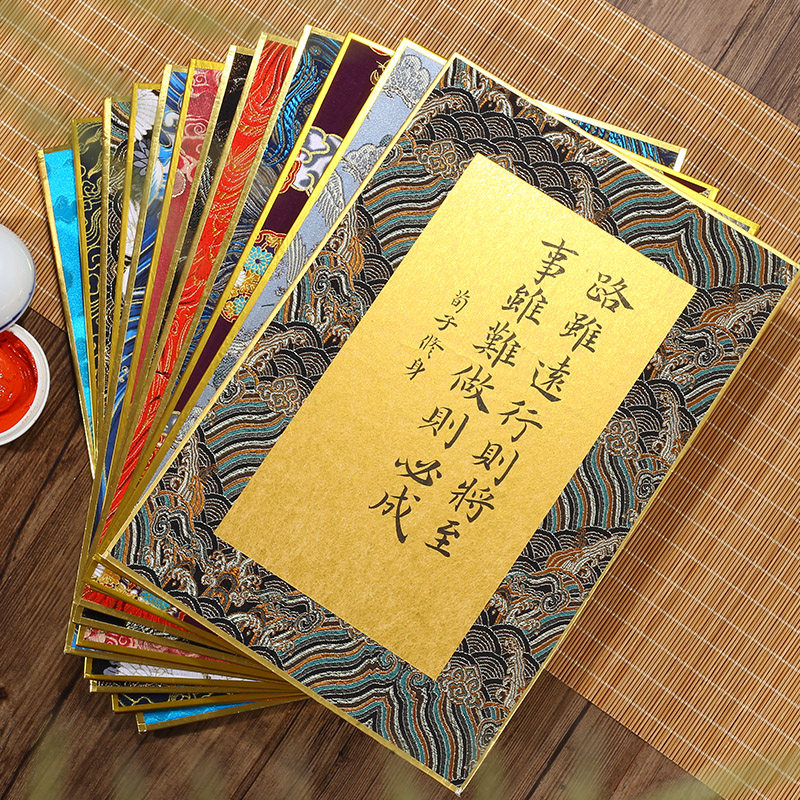 路雖遠行則將至
事雖難做則必成
荀子修身